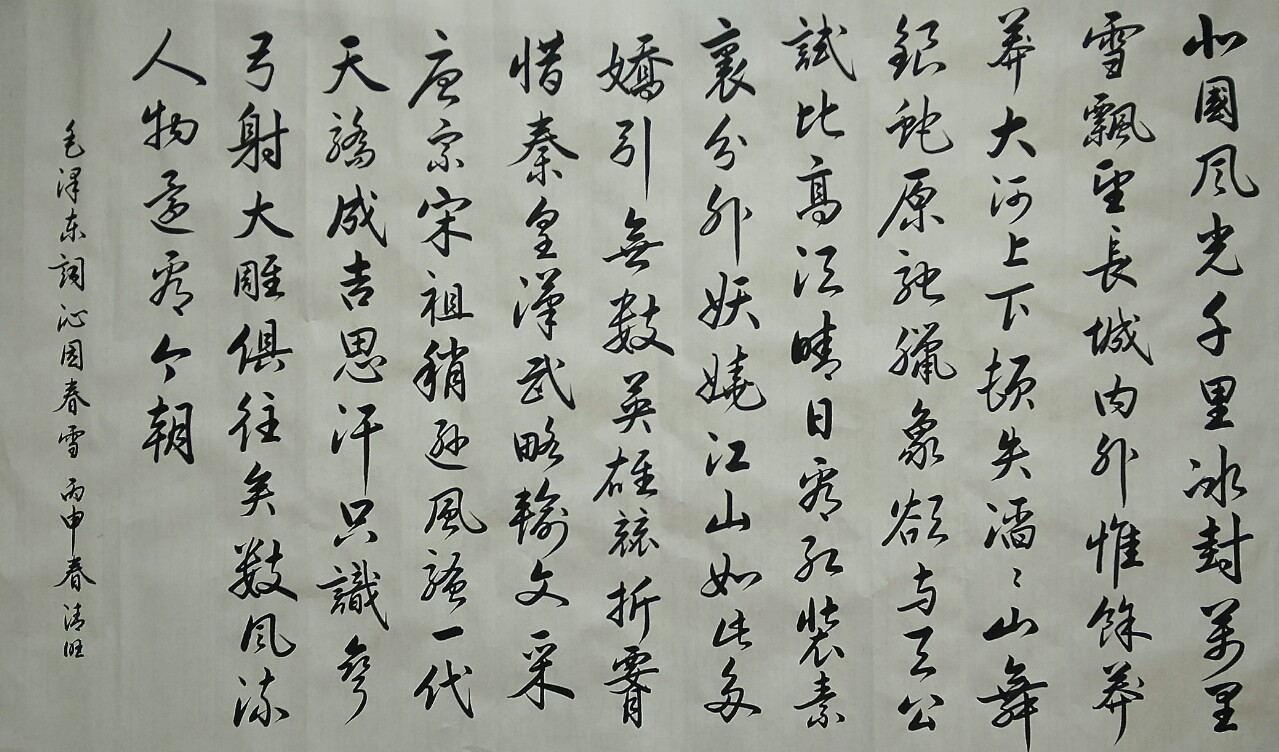 北國风光千里冰封萬里
雪飄望長城内外惟餘莽
莽大河上下顿失滔〻山舞
銀蛇原馳臘象欲与天公
試比高须晴日看红装素
裹分外妖娆江山如此多
嬌引無數英雄競折腰
惜秦皇漢武略输文采
唐宗宋祖稍逊風骚一代
天骄成吉思汗只識彎
弓射大雕俱往矣數风流
人物还看今朝
毛泽东詞沁园春雪丙申春清旺